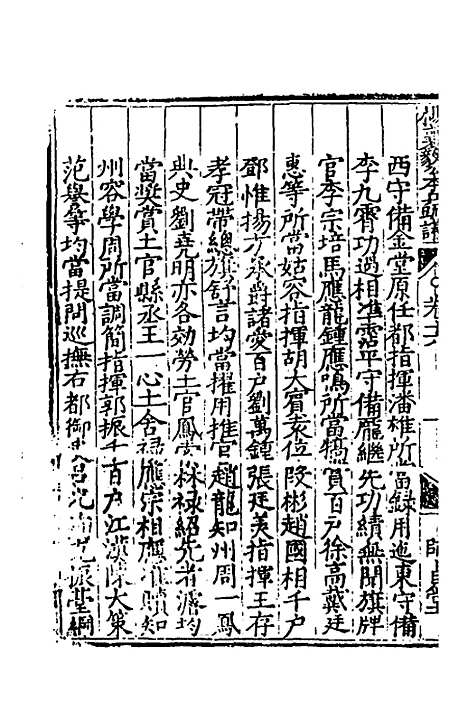 西守備金堂原任都指揮潘維所當錄用迤東守備
李九霄功過相準霑平守備龐繼先功績無聞旗牌
官李宗培馬應龍鍾應鳴所當犒賞百戶徐高戴廷
惠等所當姑容指揮胡大賓袁位段彬趙國相千戶
鄧惟揚方承爵諸愛百戶劉萬鍾張廷美指揮王存
孝冠帶總旗舒言均當擢用推官趙龍知州周一鳳
典史劉堯明亦各効勞土官鳳 祿紹先者濬均
當奨賞土官縣丞王一心土舍祿應宗相應准贖知
州容學周所當調簡指揮郭振千百戶江漢陳大策
范舉等均當提問巡撫右都御史呂光洵 振堂綱